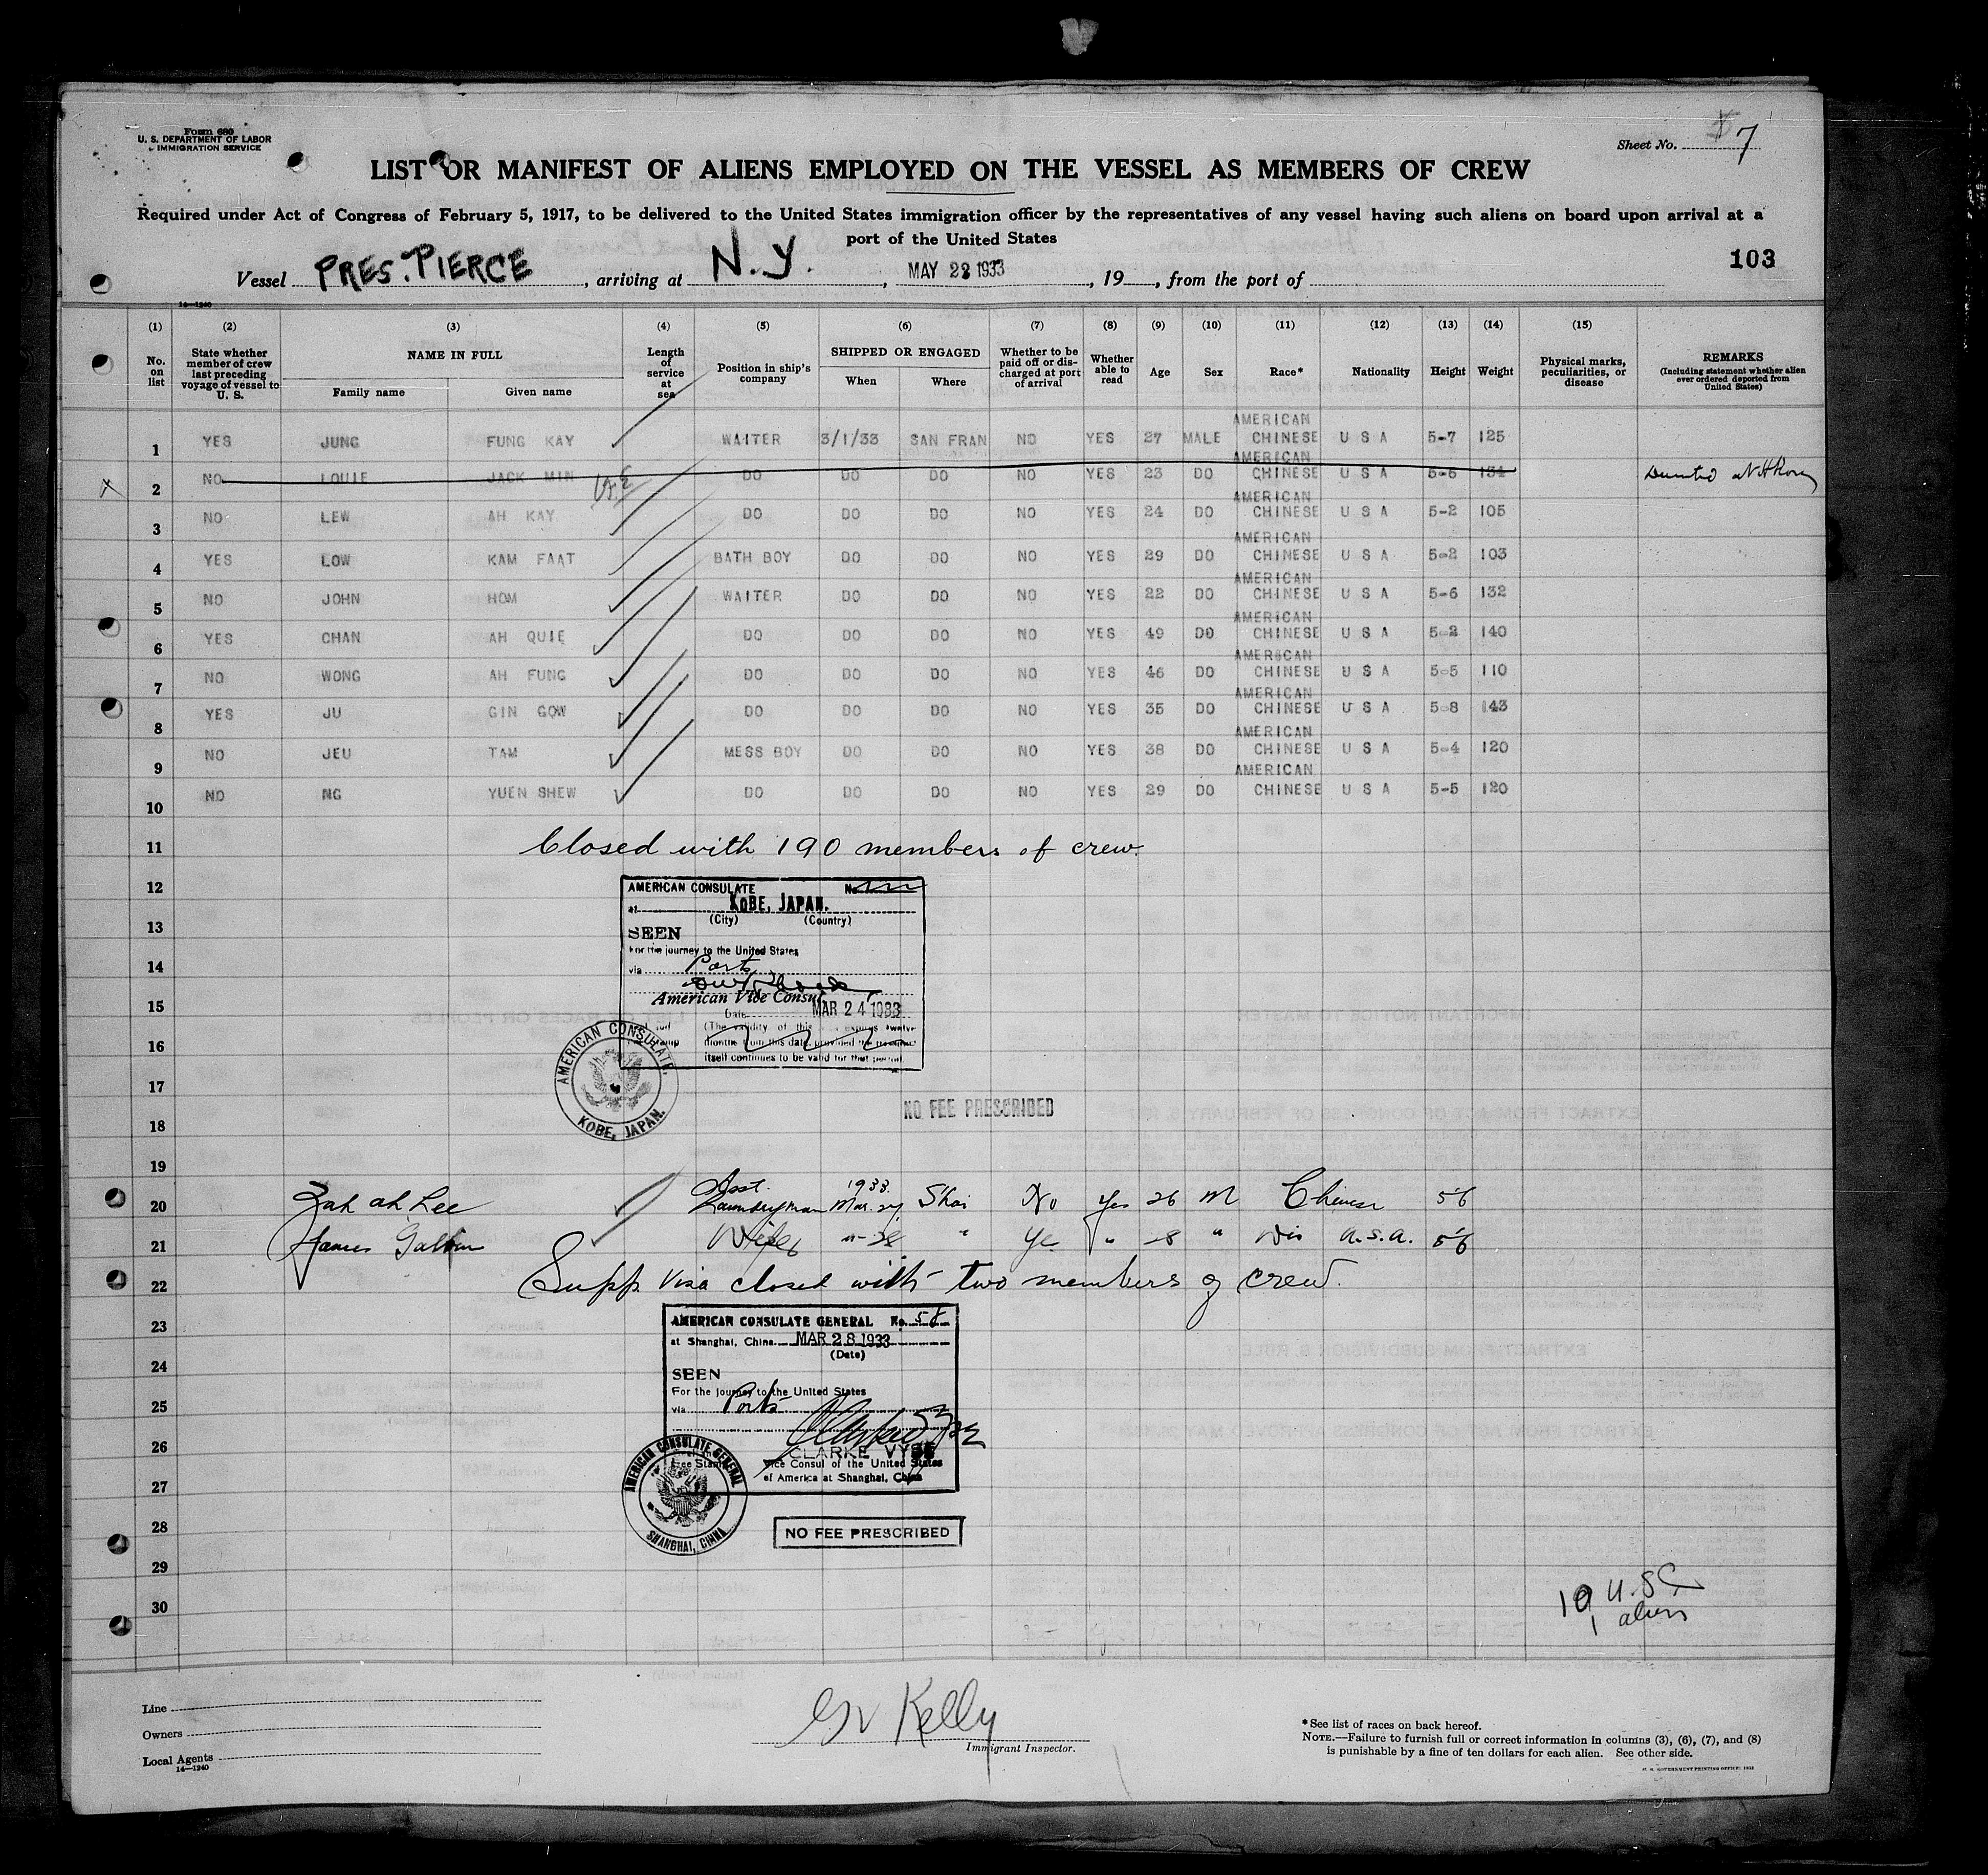 Form 680
U. S. DEPARTMENT OF LABOR
IMMIGRATION SERVICE
Sheet No. 7
LIST OR MANIFEST OF ALIENS EMPLOYED ON THE VESSEL AS MEMBERS OF CREW
Required under Act of Congress of February 5, 1917, to be delivered to the United States immigration officer by the representatives of any vessel having such aliens on board upon arrival at a
port of the United States
103
Vessel PRES. PIERCE, arriving at N.Y., MAY 22 1933, 19, from the port of
14—1240
(1) (2) (3) (4) (5) (6) (7) (8) (9) (10) (11) (12) (13) (14) (15)
No. on list
State whether member of crew last preceding voyage of vessel to U. S.
NAME IN FULL
Family name Given name
Length of service at sea
Position in ship's company
SHIPPED OR ENGAGED
When Where
Whether to be paid off or discharged at port of arrival
Whether able to read
Age Sex Race* Nationality Height Weight
Physical marks, peculiarities, or disease
REMARKS
(Including statement whether alien ever ordered deported from United States)
AMERICAN
1 YES JUNG FUNG KAY WAITER 3/1/33 SAN FRAN NO YES 27 MALE CHINESE U S A 5-7 125
AMERICAN
2 NO LOUIE JACK MIN DO DO DO NO YES 23 DO CHINESE U S A 5-5 134
AMERICAN
3 NO LEW AH KAY DO DO DO NO YES 24 DO CHINESE U S A 5-2 105
AMERICAN
4 YES LOW KAM FAAT BATH BOY DO DO NO YES 29 DO CHINESE U S A 5-2 103
AMERICAN
5 NO JOHN HOM WAITER DO DO NO YES 22 DO CHINESE U S A 5-6 132
AMERICAN
6 YES CHAN AH QUIE DO DO DO NO YES 49 DO CHINESE U S A 5-2 140
AMERICAN
7 NO WONG AH FUNG DO DO DO NO YES 46 DO CHINESE U S A 5-5 110
AMERICAN
8 YES JU GIN GOW DO DO DO NO YES 35 DO CHINESE U S A 5-8 143
AMERICAN
9 NO JEU TAM MESS BOY DO DO NO YES 38 DO CHINESE U S A 5-4 120
AMERICAN
10 NO NG YUEN SHEW DO DO DO NO YES 29 DO CHINESE U S A 5-5 120
11 Closed with 190 members of crew.
12
AMERICAN CONSULATE No.
at KOBE, JAPAN.
(City) (Country)
13
SEEN
For the journey to the United States
14
via Ports
15
American Vice Consul
Date MAR 24 1933
16
(The validity of this expires twelve
months from this date, provided the passport
itself continues to be valid for that period.
AMERICAN CONSULATE,
KOBE, JAPAN.
17
NO FEE PRESCRIBED
18
19
20 Zak ah Lee Asst. Laundryman 1933 Mar. 27 Shai No Yes 26 M Chinese 5'6
21 James Wiper " " " U.S.A. 5'6
22 Supp. visa closed with two members of crew.
23
AMERICAN CONSULATE GENERAL No. 58
at Shanghai, China MAR 28 1933
(Date)
24
SEEN
For the journey to the United States
25
via Ports
26
CLARKE VYSE
Fee Stamp
Vice Consul of the United States
of America at Shanghai, China
AMERICAN CONSULATE GENERAL
SHANGHAI, CHINA
27
28
NO FEE PRESCRIBED
29
30
10 U.S.C.
1 alien
Line
Owners
Local Agents
14—1240
Kelly
Immigrant Inspector.
*See list of races on back hereof.
NOTE.—Failure to furnish full or correct information in columns (3), (6), (7), and (8)
is punishable by a fine of ten dollars for each alien. See other side.
U. S. GOVERNMENT PRINTING OFFICE: 1932